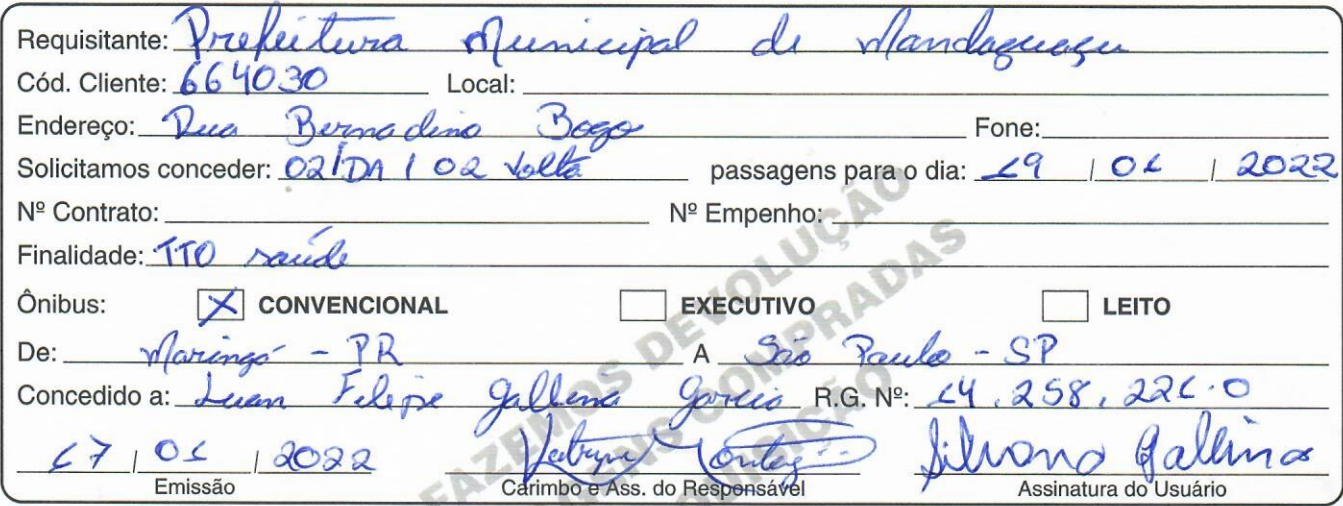 Requisitante: Prefeitura Municipal de Mandaguaçu
Cód. Cliente: 664030 Local:
Endereço: Rua Bernadino Bogo Fone:
Solicitamos conceder: 02 IDA / 02 Volta passagens para o dia: 19 / 01 / 2022
Nº Contrato: Nº Empenho:
Finalidade: TTO saúde
Ônibus: CONVENCIONAL EXECUTIVO LEITO
De: Maringá - PR A São Paulo - SP
Concedido a: Luan Felipe Gallina Garcia R.G. Nº: 14.258.221.0
17 / 01 / 2022 Silvana Gallina
Emissão Carimbo e Ass. do Responsável Assinatura do Usuário
FAZEMOS DEVOLUÇÃO
COMPRADAS